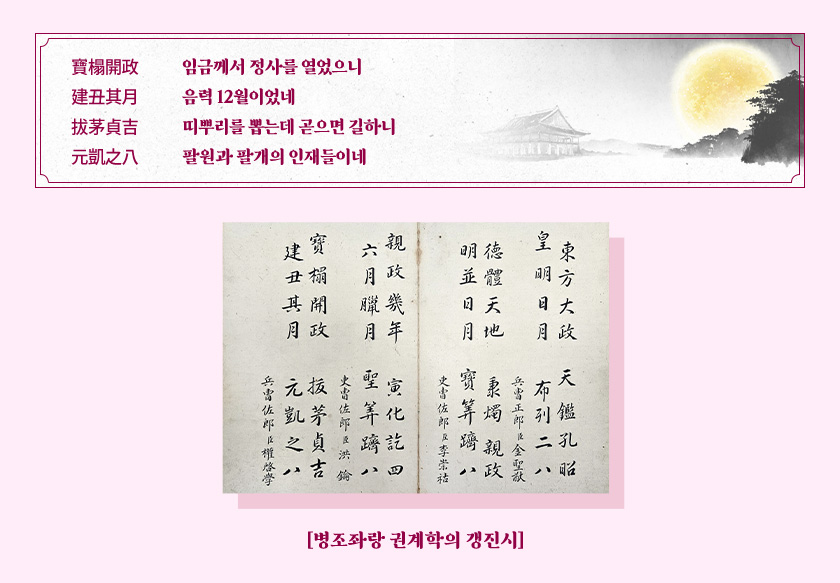 寶榻開政 임금께서 정사를 열었으니
建丑其月 음력 12월이었네
拔茅貞吉 띠뿌리를 뽑는데 곧으면 길하니
元凱之八 팔원과 팔개의 인재들이네
東方大政 天鑑孔昭
皇明日月 布列二八
兵曺正郎臣金聖
德體天地 秉燭親政
明並日月 寶筭躋八
吏曺佐郎臣李崇祜
親政幾年 寅化訖四
六月臘月 聖筭躋八
吏曺佐郎臣洪
寶榻開政 拔茅貞吉
建丑其月 元凱之八
兵曺佐郎臣權啓學
[병조좌랑 권계학의 갱진시]